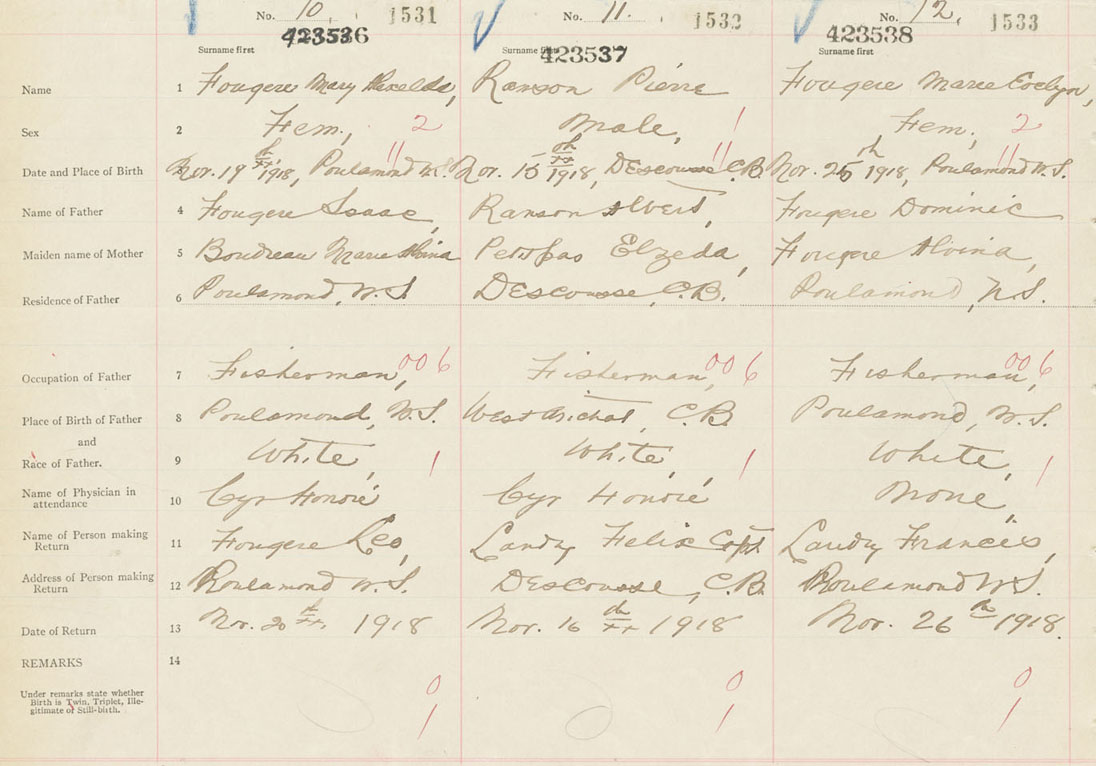 No. 10 1531 No. 11. 1532 No. 12, 1533
423536 423537 423538
Surname first Surname first Surname first
Name 1 Fougere Mary, Ranson Pierre Fougere Marie Evelyn,
Sex 2 Fem, 2 Male, 1 Fem, 2
Date and Place of Birth Nor. 19th 1918, Poulamond N.S. 11 Nor. 15th 1918, Descousse C.B. 11 Nor. 25th 1918, Poulamond N.S. 11
Name of Father 4 Fougere Isaac, Ranson Albert, Fougere Dominic
Maiden name of Mother 5 Boudreau Marie Alvina Petitpas Elzeda, Fougere Alvina,
Residence of Father 6 Poulamond, N.S. Descousse, C.B. Poulamond, N.S.
Occupation of Father 7 Fisherman, 006 Fisherman, 006 Fisherman, 006
Place of Birth of Father 8 Poulamond, N.S. West Arichat, C.B. Poulamond, N.S.
and
Race of Father. 9 White, 1 White, 1 White, 1
Name of Physician in
attendance 10 Cyr Honoré Cyr Honoré None,
Name of Person making
Return 11 Fougere Leo, Landry Felix Capt Landry Francis,
Address of Person making
Return 12 Poulamond N.S. Descousse, C.B. Poulamond N.S.
Date of Return 13 Nor. 20th 1918 Nor. 16th 1918 Nor. 26th 1918.
REMARKS 14
Under remarks state whether
Birth is Twin, Triplet, Ille-
gitimate or Still-birth.
0 0 0
1 1 1